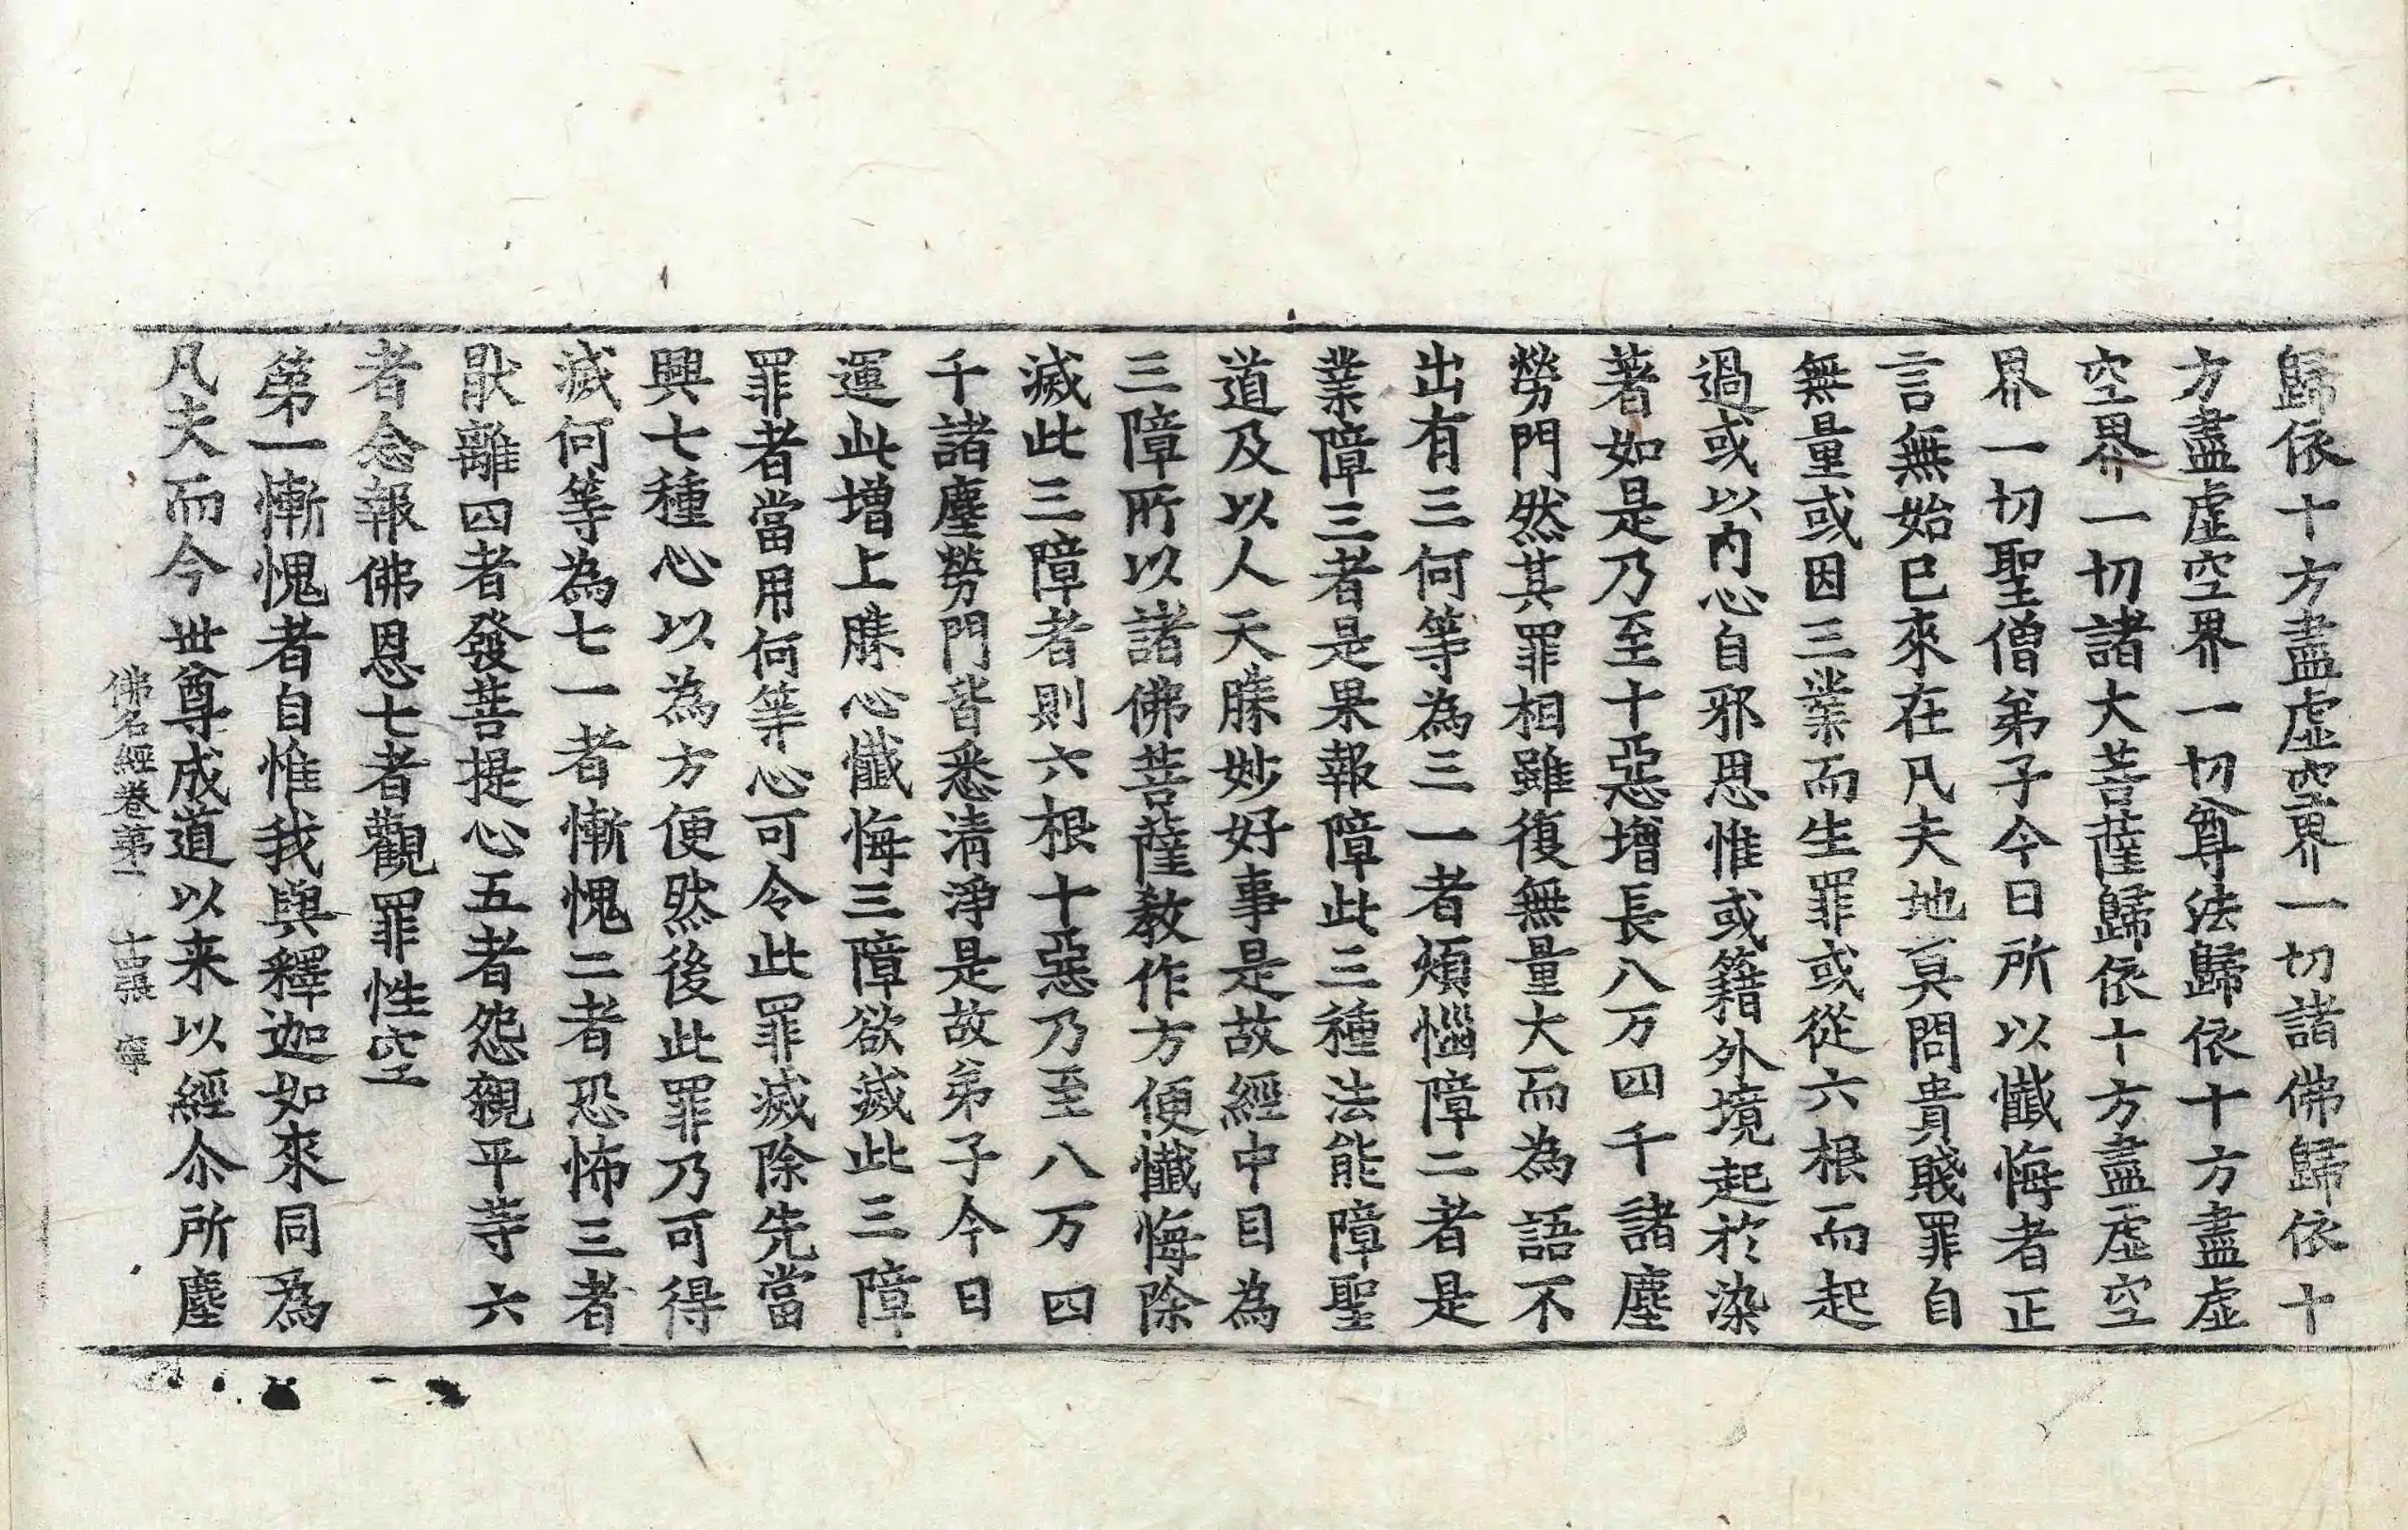 歸依十方盡虛空界一切諸佛歸依十
方盡虛空界一切尊法歸依十方盡虛
空界一切諸大菩薩歸依十方盡虛空
界一切聖僧弟子今日所以懺悔者正
言無始已來在凡夫地莫問貴賤罪自
無量或因三業而生罪或從六根而起
過或以內心自邪思惟或籍外境起於染
著如是乃至十惡增長八万四千諸塵
勞門然其罪相雖復無量大而為語不
出有三何等為三一者煩惱障二者是
業障三者是果報障此三種法能障聖
道及以人天勝妙好事是故經中目為
三障所以諸佛菩薩教作方便懺悔除
滅此三障者則六根十惡乃至八万四
千諸塵勞門皆悉清淨是故弟子今日
運此增上勝心懺悔三障欲滅此三障
罪者當用何等心可令此罪滅除先當
興七種心以為方便然後此罪乃可得
滅何等為七一者慚愧二者恐怖三者
猒離四者發菩提心五者怨親平等六
者念報佛恩七者觀罪性空
第一慚愧者自惟我與釋迦如來同為
凡夫而今世尊成道以来以經尒所塵
佛名經卷第一 十四張